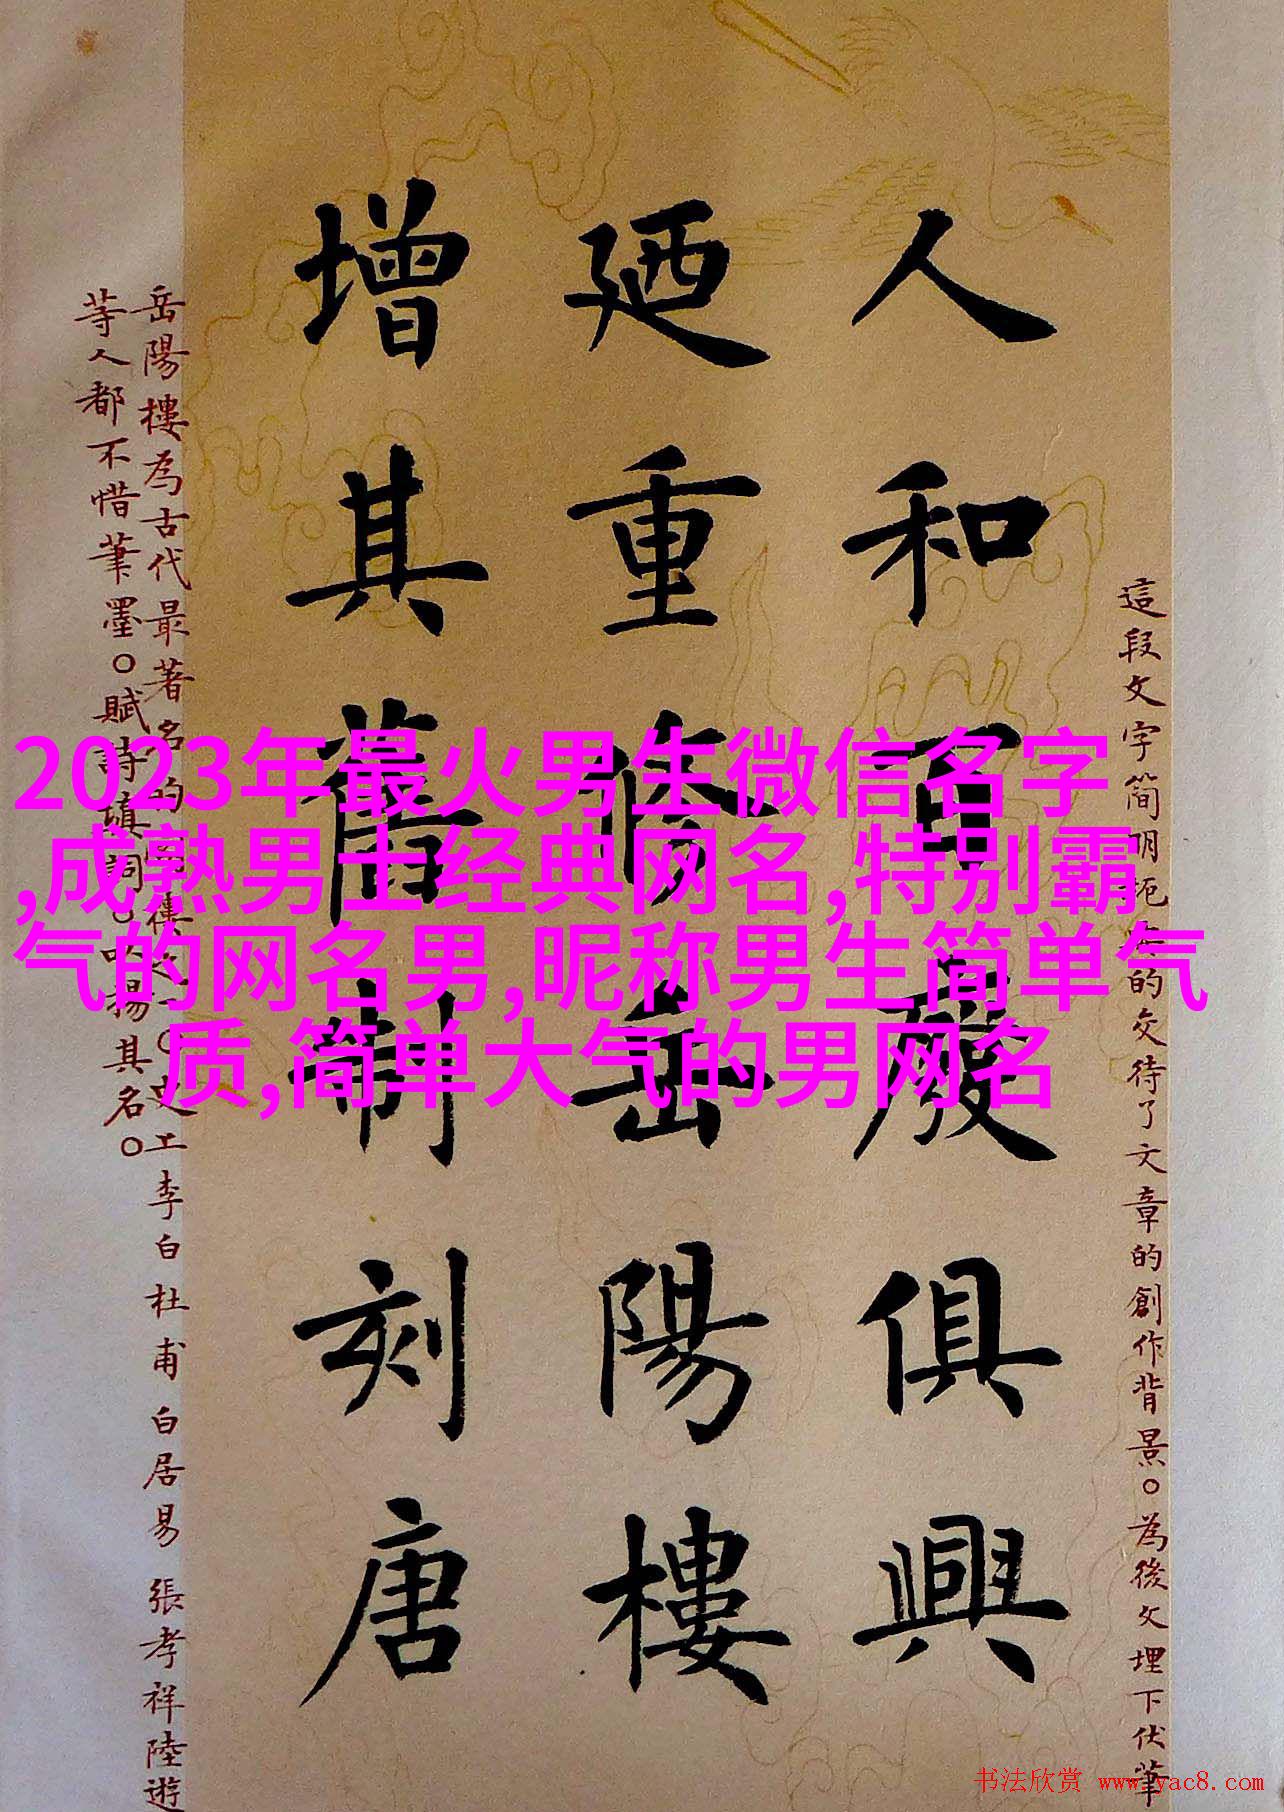 人和百廢俱興
廼重修岳陽樓
增其舊制刻唐
這段文字简明扼要的交待了文章的創作背景。為後文埋下伏筆
岳陽樓為古代最著名的
工李白杜甫白居易張孝祥陸遊
等人都不惜筆墨。賦詩填詞。以揚其名。
2023年最火男生微信名字
,成熟男士经典网名,特别霸
气的网名男,昵称男生简单气
质,简单大气的男网名
书法欣赏 www.yac8.com